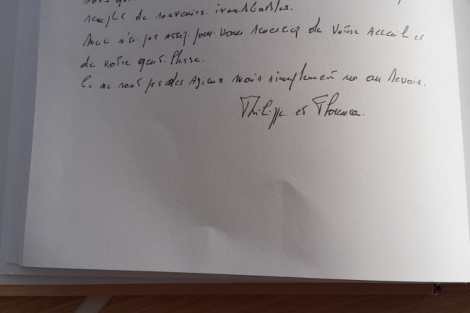 remplis de souvenirs inoubliables.
pas assez pour vous remercier de votre accueil et
de votre gentillesse.
Ce ne sont pas des adieux mais simplement un au revoir.
Philippe et Florence.